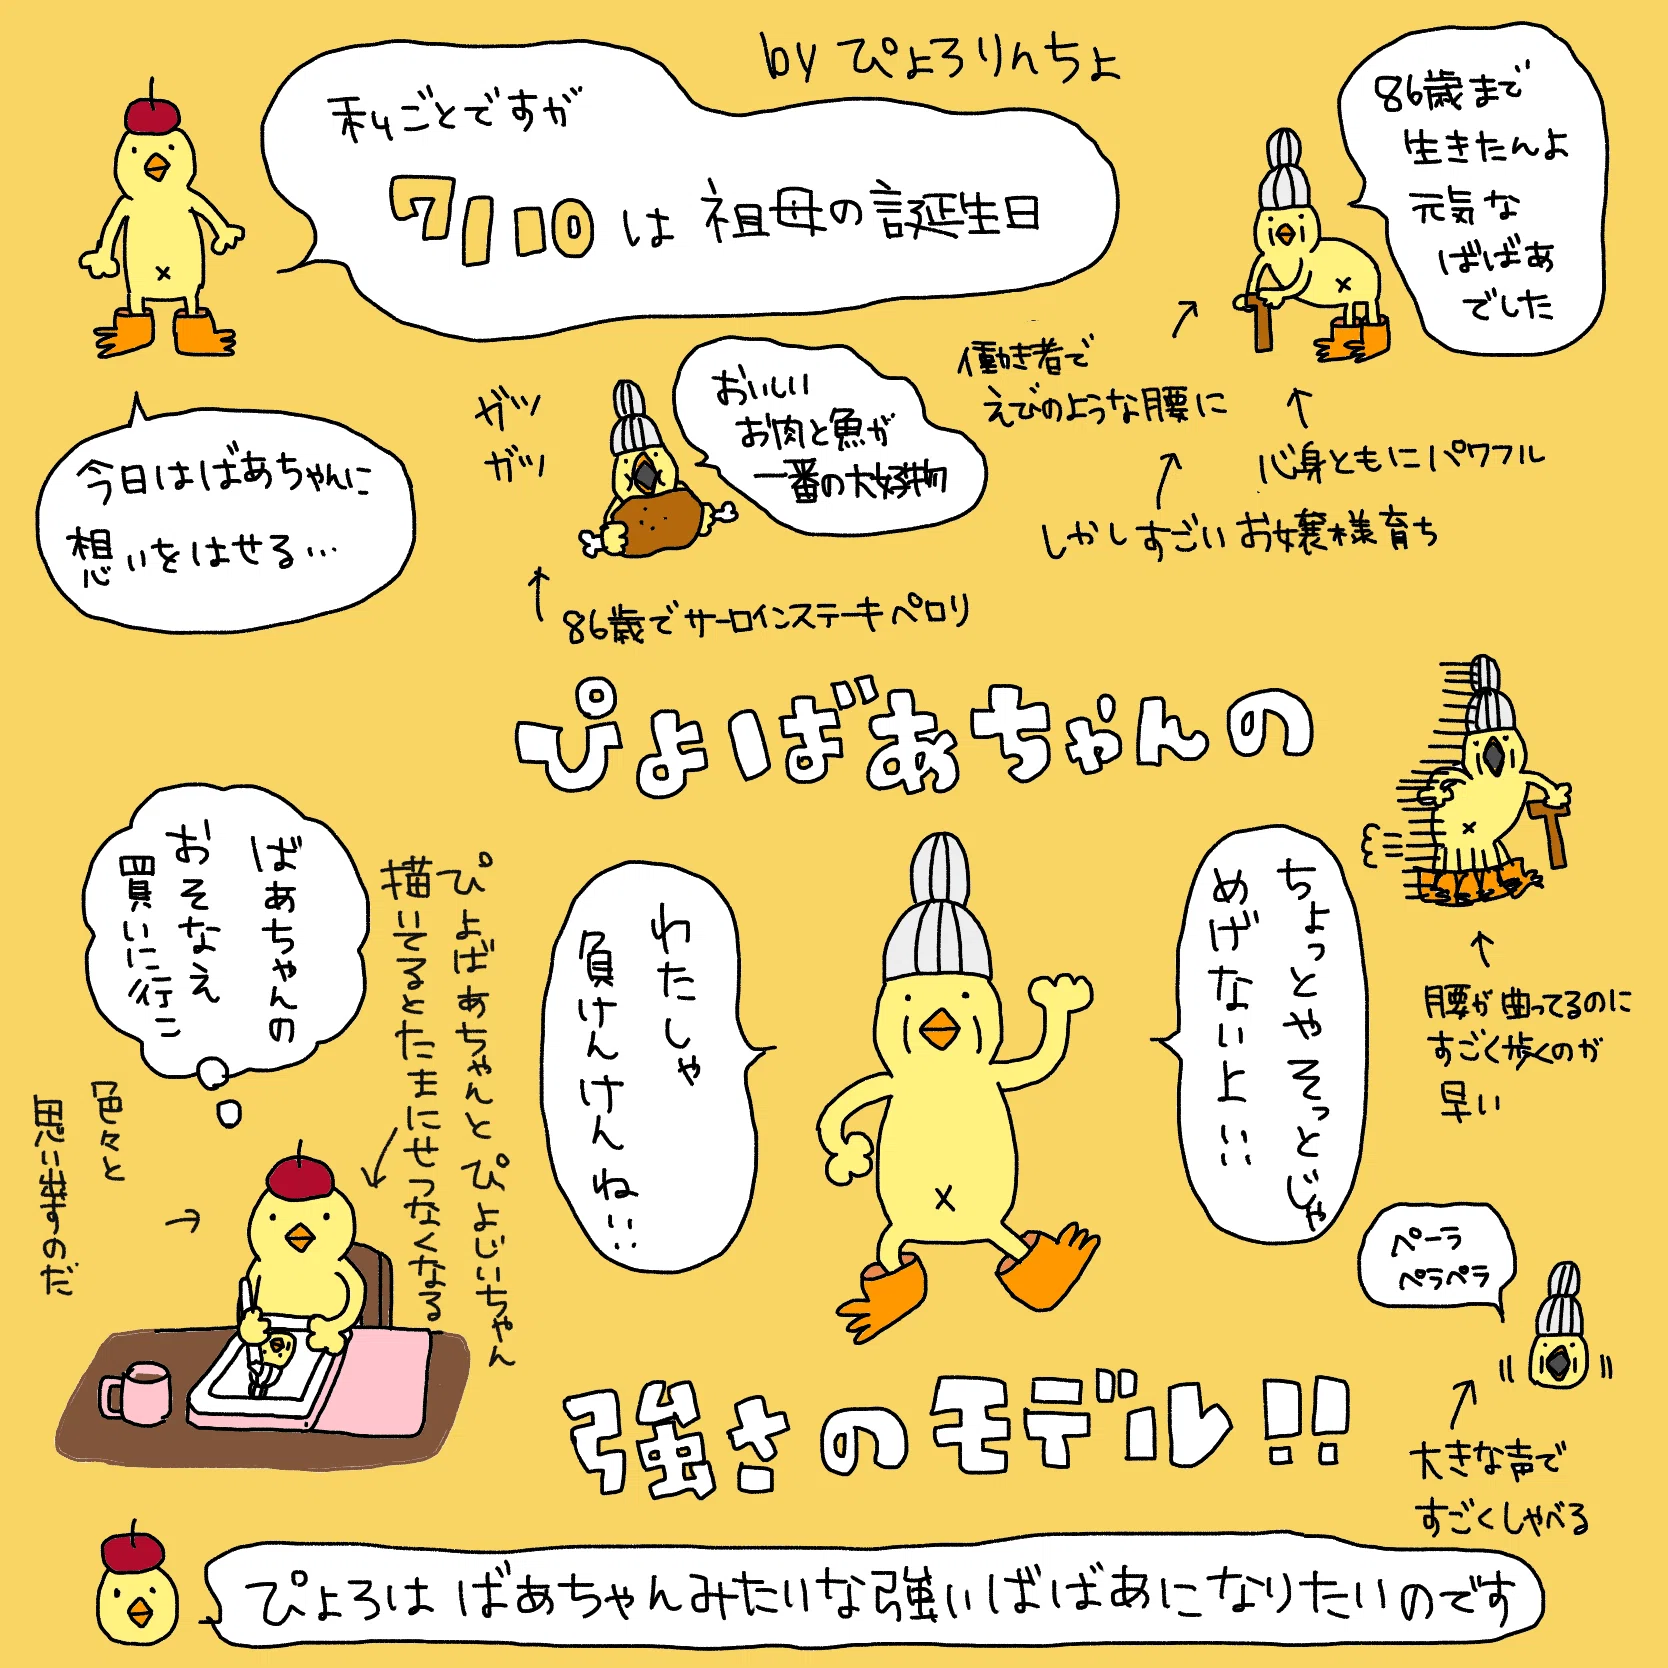 by ぴよろりんちょ
私ごとですが
7/10は祖母の誕生日
86歳まで
生きたんよ
元気な
ばばあ
でした
今日はばあちゃんに
想いをはせる…
ガツ
ガツ
おいしい
お肉と魚が
一番の大好物
86歳でサーロインステーキペロリ
働き者で
えびのような腰に
心身ともにパワフル
しかしすごいお嬢様育ち
ぴよばあちゃんの
腰が曲ってるのに
すごく歩くのが
早い
ちょっとやそっとじゃ
めげないよ!!
わたしゃ
負けんけんね!!
ばあちゃんの
おそなえ
買いに行こ
ぴよばあちゃんとぴよじいちゃん
描いてるとたまにせつなくなる
色々と
思い出すのだ
ペーラ
ペラペラ
大きな声で
すごくしゃべる
強さのモデル!!
ぴよろは ばあちゃんみたいな強いばばあになりたいのです